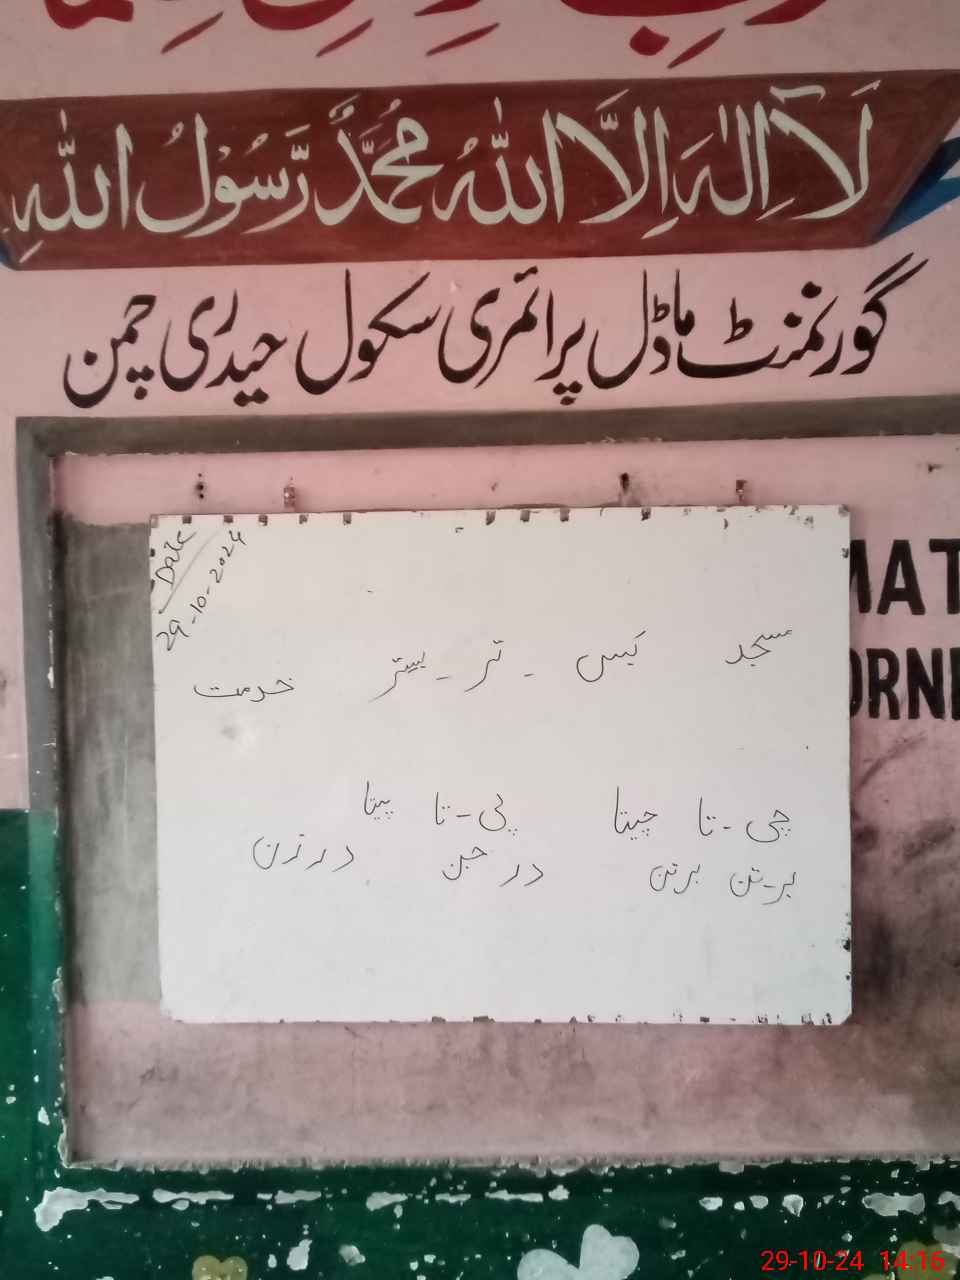 لَآ اِلٰہَ اِلَّا اللّٰہُ مُحَمَّدٌ رَّسُوْلُ اللّٰہِ
گورنمنٹ ماڈل پرائمری سکول حیدری چمن
Date
29-10-2024
مسجد بس - تر - بستر خدمت
چی - تا چیتا پی - تا پیتا
بر-تن برتن در جن درزن
MAT
ORNE
29-10-24 14:16